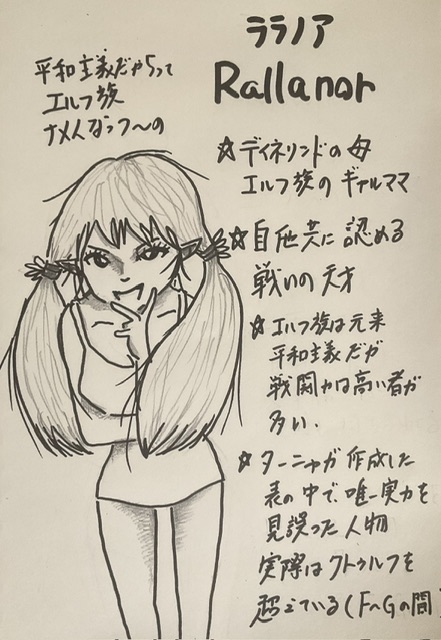 ララノア
Rallanor
平和主義だからって
エルフ族
ナメんなっつ〜の
☆ディネリンドの母
エルフ族のギャルママ
☆自他共に認める
戦いの天才
☆エルフ族は元来
平和主義だが
戦闘力は高い者が
多い.
☆ターニャが作成した
表の中で唯一実力を
見誤った人物
実際はクトゥルフを
超えている(F〜Gの間)